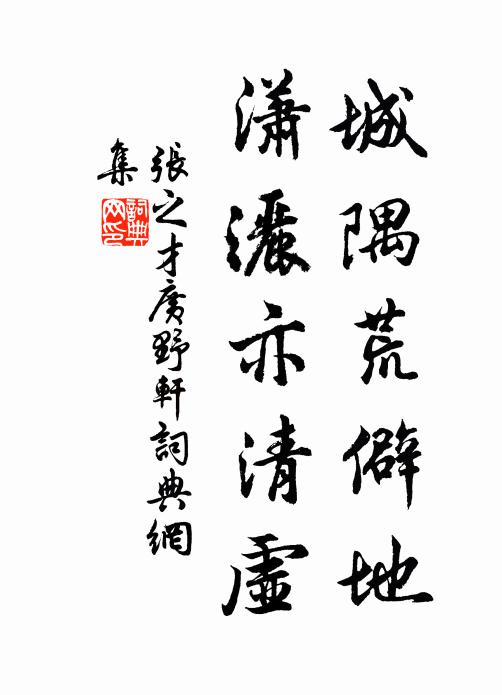 城隅荒僻地
瀟灑亦清虛
張之才廣野軒詞典網
集
詞典
网印